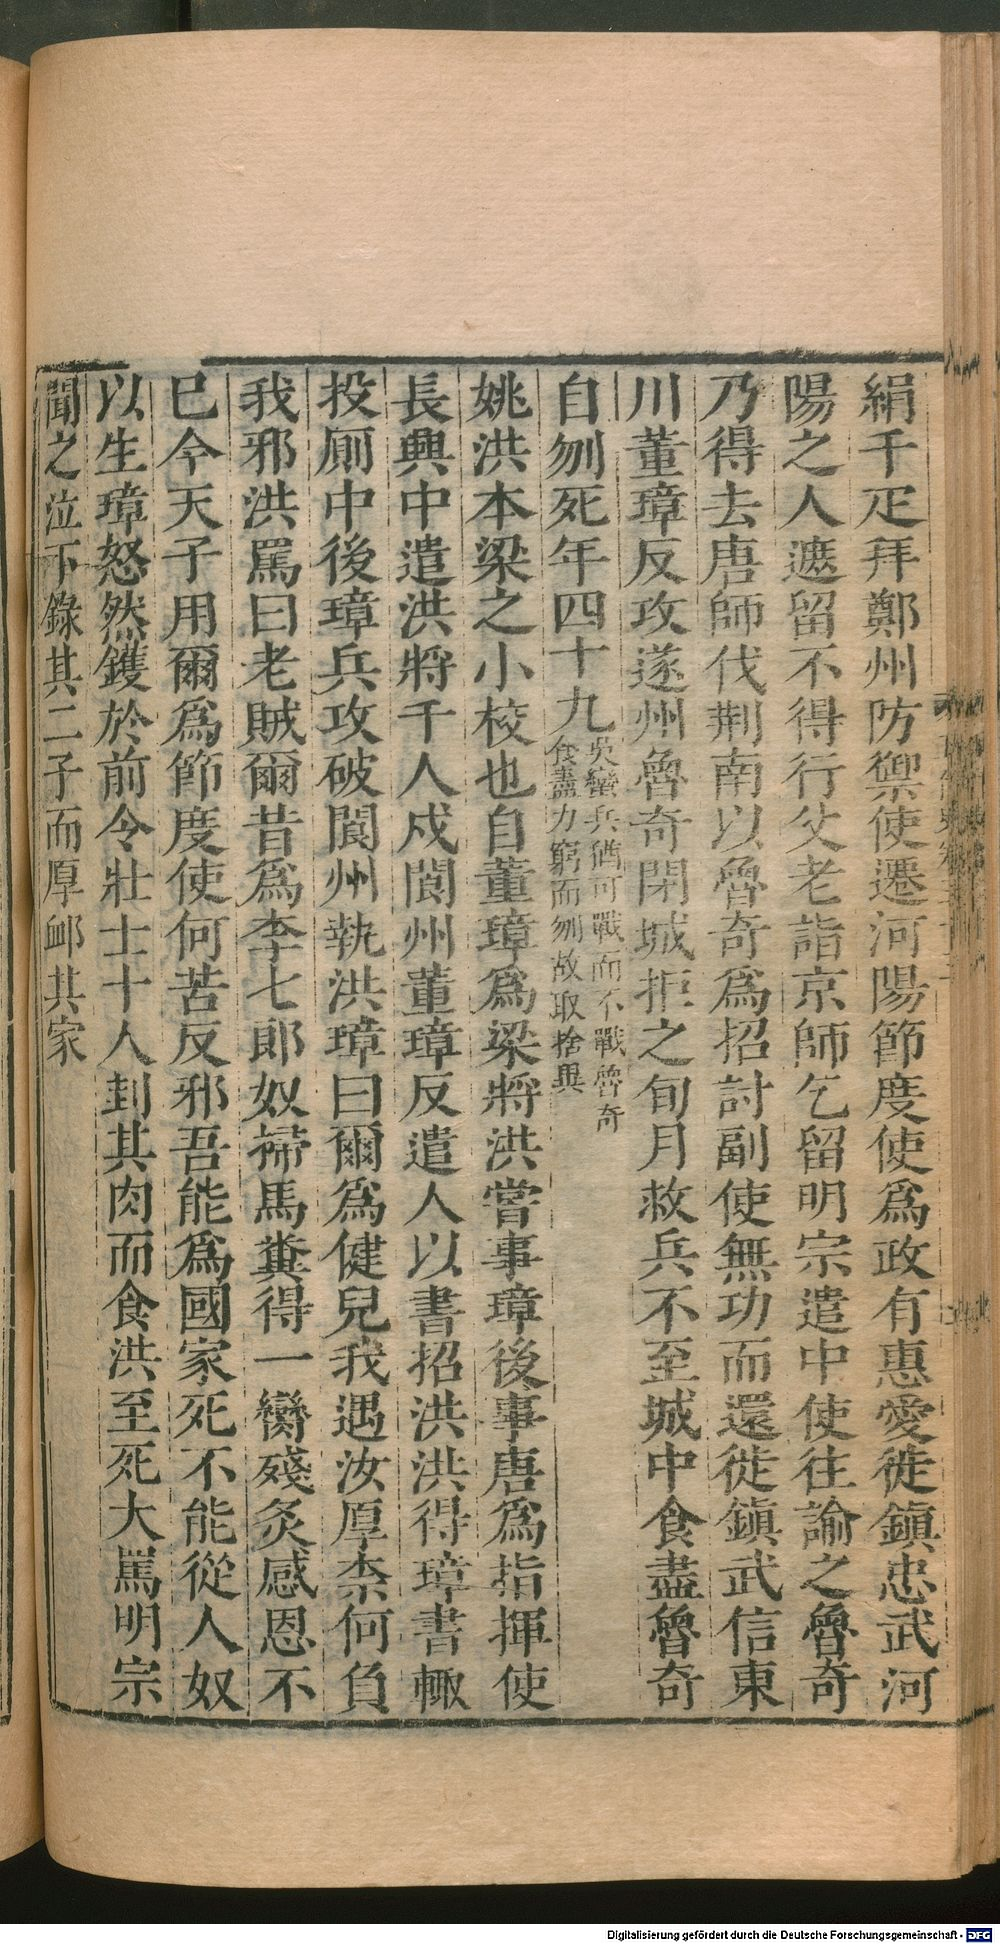 絹千疋拜鄭州防禦使遷河陽節度使爲政有惠愛徙鎭忠武河
陽之人遮留不得行父老詣京師乞留明宗遣中使往諭之魯奇
乃得去唐師伐荆南以魯奇爲招討副使無功而還徙鎭武信東
川董璋反攻遂州魯奇閉城拒之旬月救兵不至城中食盡魯奇
自刎死年四十九
吳巒兵猶可戰而不戰魯奇
食盡力窮而刎故取捨異
姚洪本梁之小校也自董璋爲梁將洪嘗事璋後事唐爲指揮使
長興中遣洪將千人戍閬州董璋反遣人以書招洪洪得璋書輙
投厠中後璋兵攻破閬州執洪璋曰爾爲健兒我遇汝厚柰何負
我邪洪罵曰老賊爾昔爲李七郎奴掃馬糞得一臠殘炙感恩不
已今天子用爾爲節度使何苦反邪吾能爲國家死不能從人奴
以生璋怒然鑊於前令壯士十人刲其肉而食洪至死大罵明宗
聞之泣下錄其二子而厚卹其家
Digitalisierung gefördert durch die Deutsche Forschungsgemeinschaft - DFG